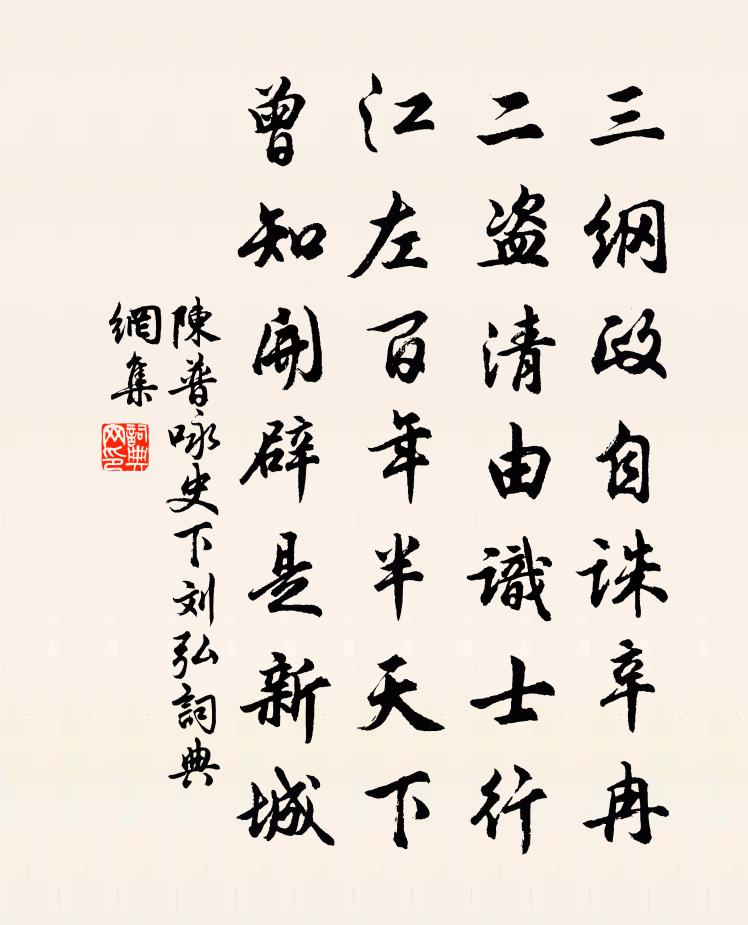 三纲政自诛辛冉
二盗清由識士行
江左百年半天下
曾知开辟是新城
陳普咏史下刘弘詞典
網集
詞典網印